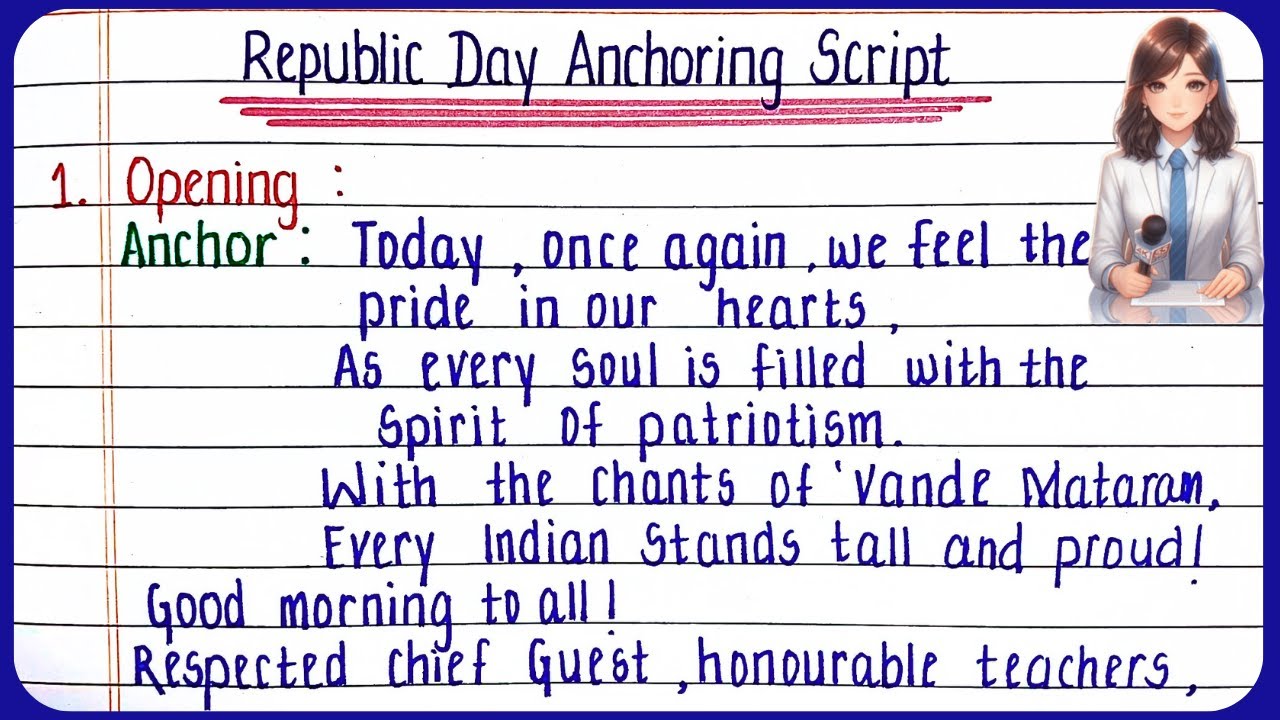 Republic Day Anchoring Script
1. Opening :
Anchor : Today , once again , we feel the
pride in our hearts ,
As every soul is filled with the
Spirit of patriotism.
With the chants of 'Vande Mataram,
Every Indian Stands tall and proud!
Good morning to all!
Respected chief Guest , honourable teachers ,